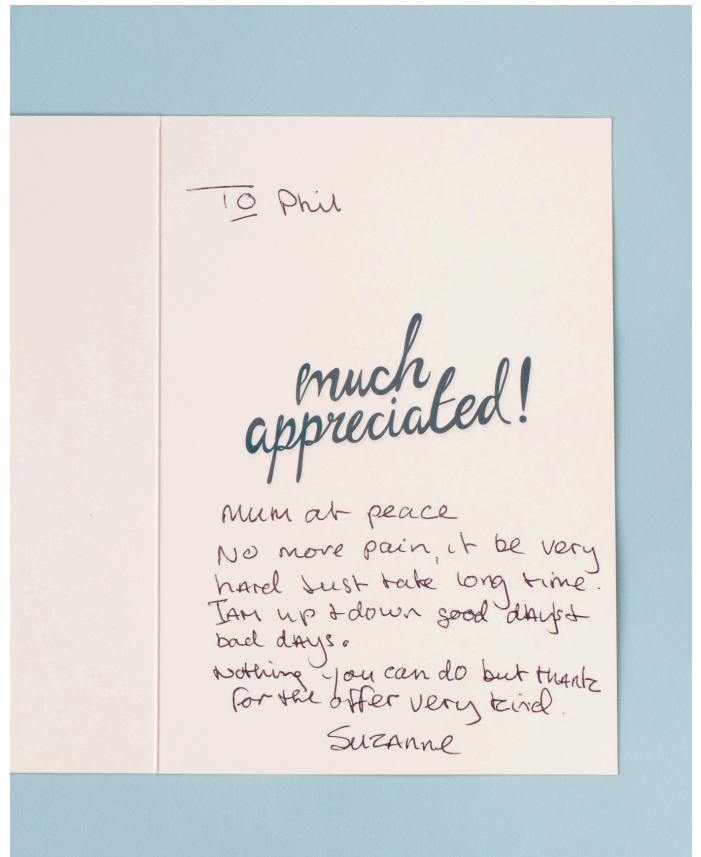 To Phil
much
appreciated!
Mum at peace
No more pain, it be very
hard Just take long time.
I AM up & down good dAys &
bad dAys.
Nothing you can do but thank
for the offer very kind.
SuzAnne